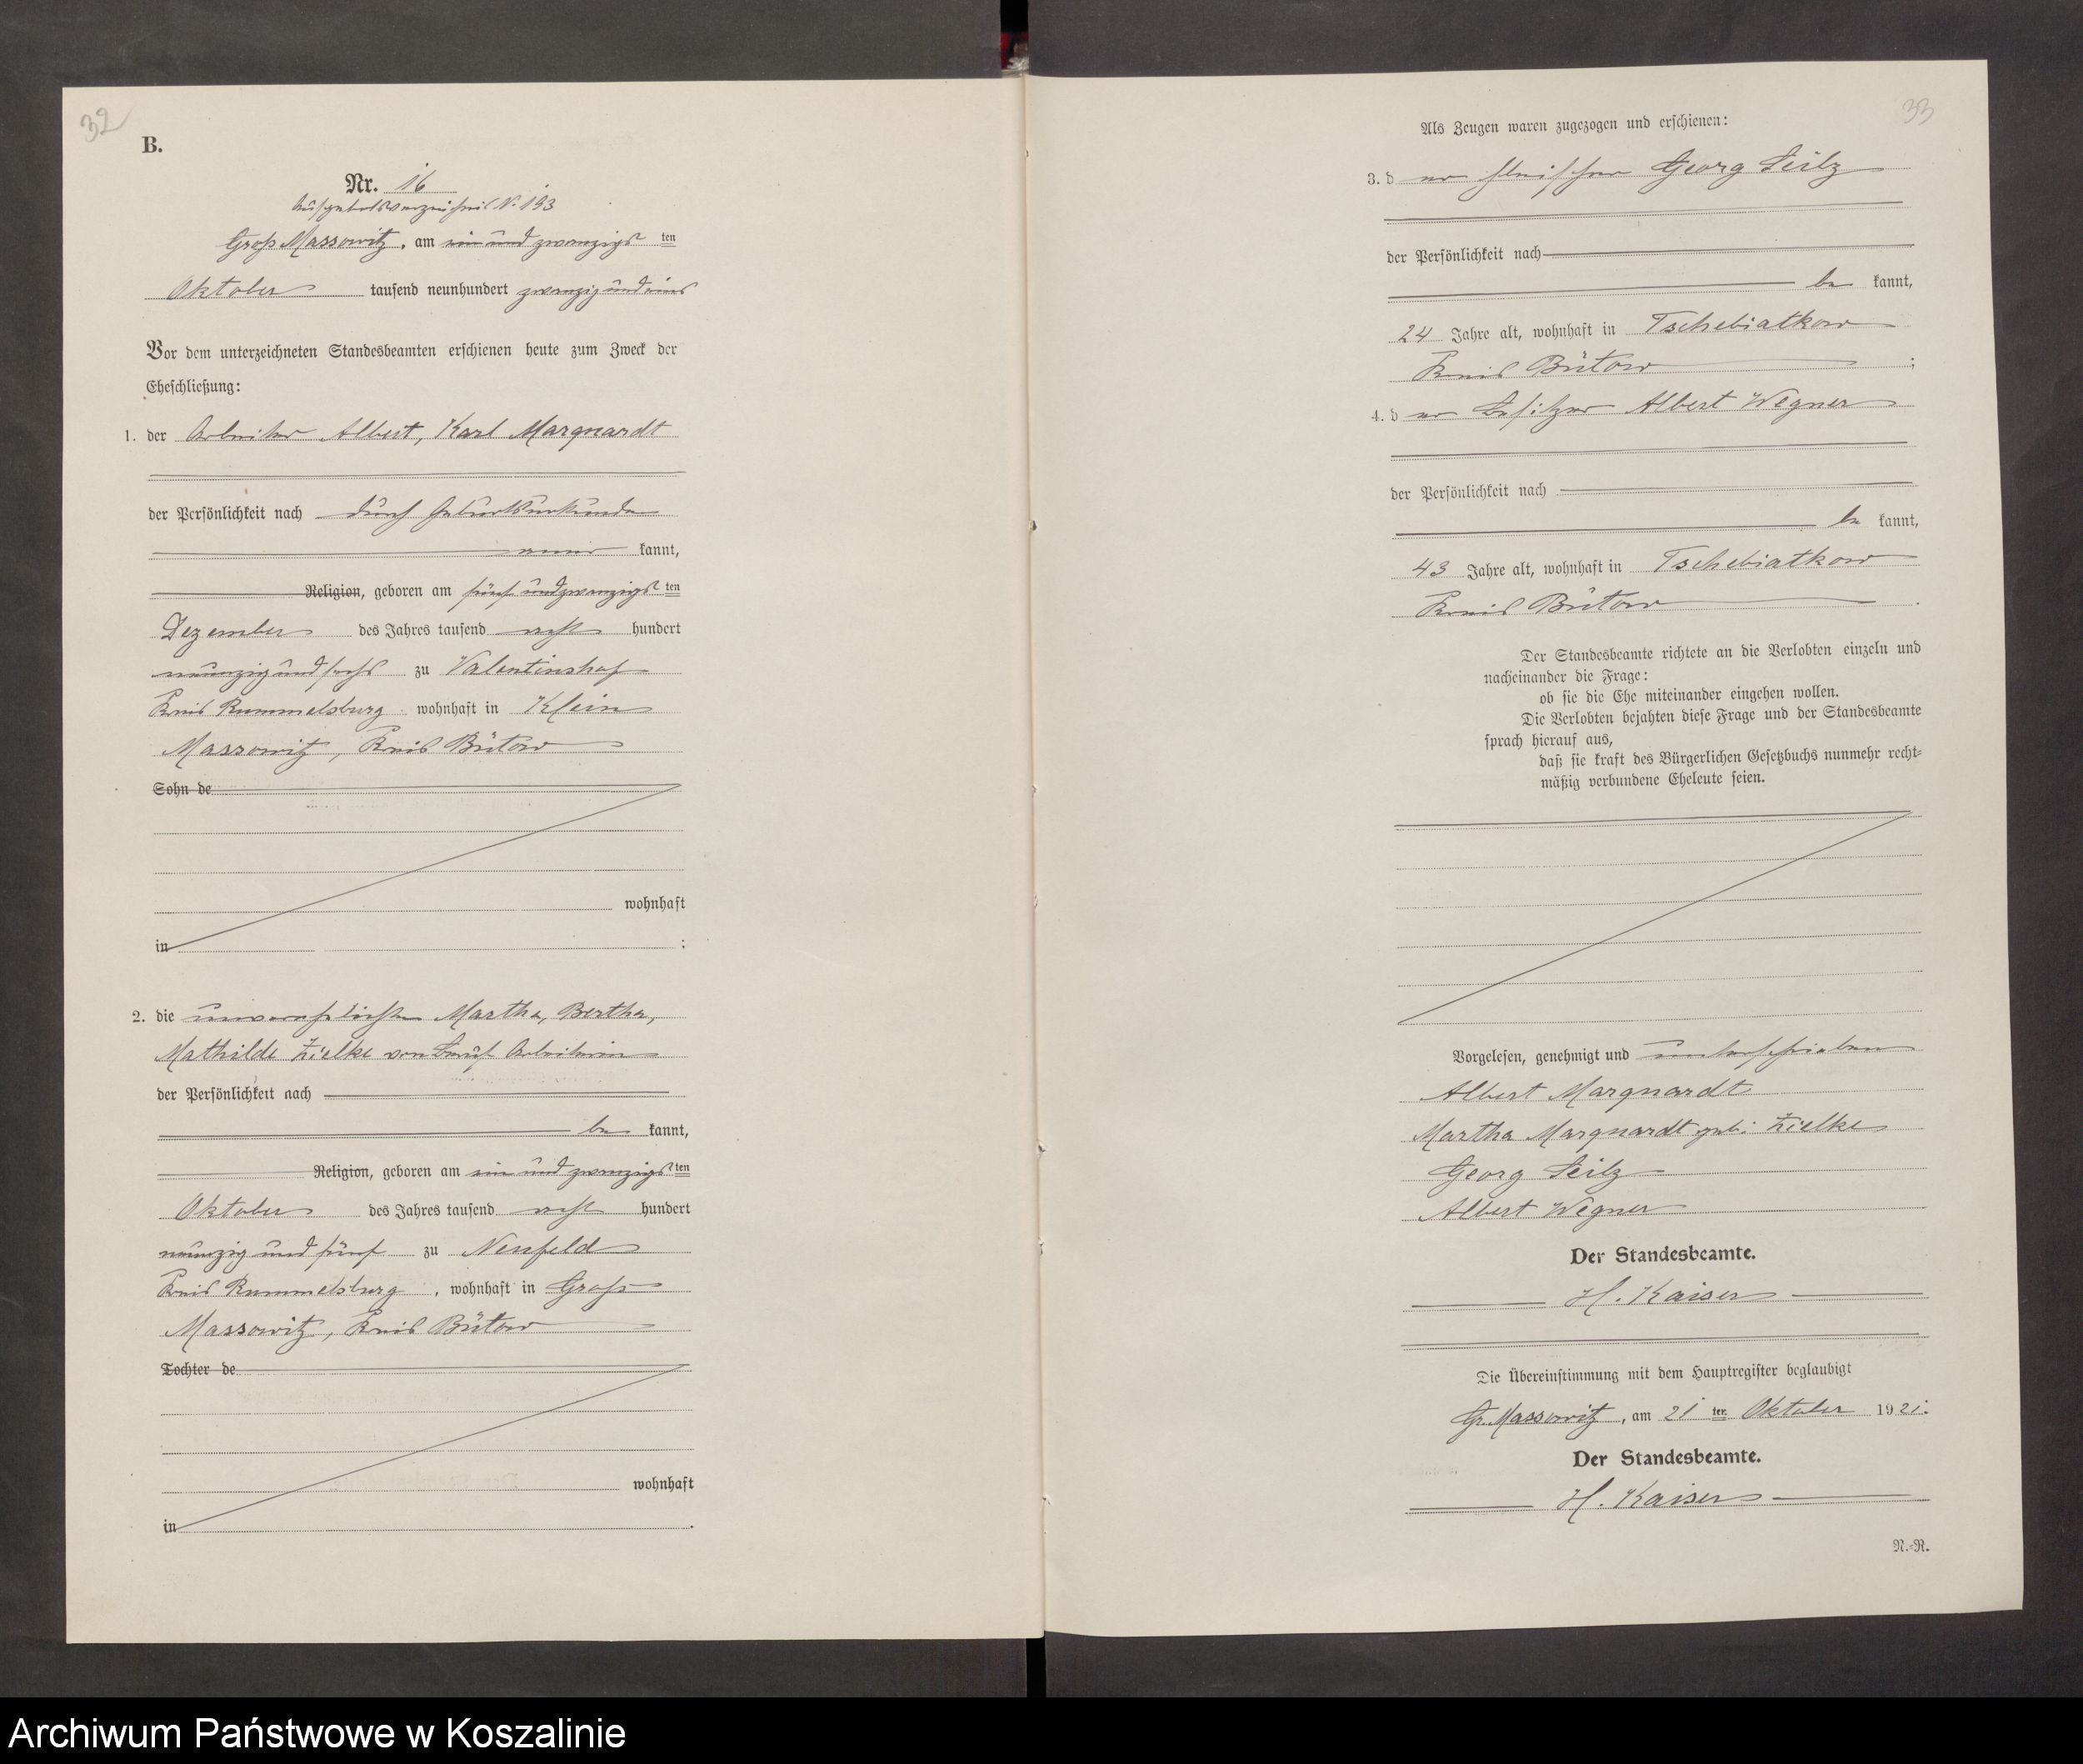 32
B.
Nr. 16
Aufgebotsverzeichnis N. 193
Groß Massowitz, am ein und zwanzigsten
Oktober tausend neunhundert zwanzig und eins
Vor dem unterzeichneten Standesbeamten erschienen heute zum Zweck der
Eheschließung:
1. der Arbeiter Albert, Karl Marquardt
der Persönlichkeit nach durch Geburtsurkunde
aner kannt,
Religion, geboren am fünf und zwanzigsten
Dezember des Jahres tausend acht hundert
neunzig und sechs zu Valentinshof
Kreis Rummelsburg wohnhaft in Klein
Massowitz, Kreis Bütow
Sohn de
wohnhaft
in :
2. die unverehelichte Martha, Bertha,
Mathilde Zielke von Beruf Arbeiterin
der Persönlichkeit nach
be kannt,
Religion, geboren am ein und zwanzigsten
Oktober des Jahres tausend acht hundert
neunzig und fünf zu Neufeld
Kreis Rummelsburg, wohnhaft in Groß
Massowitz, Kreis Bütow
Tochter de
wohnhaft
in .
33
Als Zeugen waren zugezogen und erschienen:
3. der Fleischer Georg Seilz
der Persönlichkeit nach
be kannt,
24 Jahre alt, wohnhaft in Tschebiatkow
Kreis Bütow ;
4. der Besitzer Albert Wegner
der Persönlichkeit nach
be kannt,
43 Jahre alt, wohnhaft in Tschebiatkow
Kreis Bütow .
Der Standesbeamte richtete an die Verlobten einzeln und
nacheinander die Frage:
ob sie die Ehe miteinander eingehen wollen.
Die Verlobten bejahten diese Frage und der Standesbeamte
sprach hierauf aus,
daß sie kraft des Bürgerlichen Gesetzbuchs nunmehr recht-
mäßig verbundene Eheleute seien.
Vorgelesen, genehmigt und unterschrieben
Albert Marquardt
Martha Marquardt geb: Zielke
Georg Seilz
Albert Wegner
Der Standesbeamte.
H. Kaiser
Die Übereinstimmung mit dem Hauptregister beglaubigt
Gr. Massowitz, am 21 ten Oktober 1921.
Der Standesbeamte.
H. Kaiser
N.-R.
Archiwum Państwowe w Koszalinie